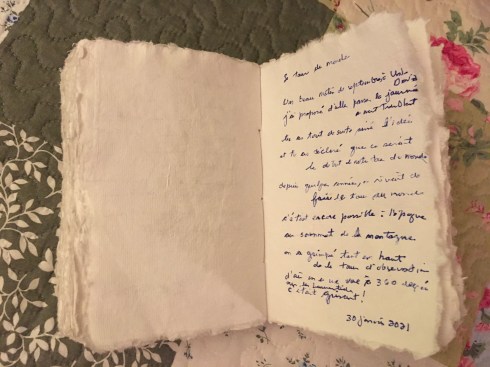 Le tour du monde
Un beau matin de septembre Val David
j'ai proposé d'aller passer la journée
à mont Tremblant
tu as tout de suite saisi l'idée
et tu as déclaré que ce serait
le début de notre tour du monde
depuis quelques années, on rêvait de
faire le tour du monde
c'était encore possible à l'époque
au sommet de la montagne
on a grimpé tout en haut
de la tour d'observation
d'où on a une vue à 360 degrés
sur les Laurentides
c'était grisant !
30 janvier 2021